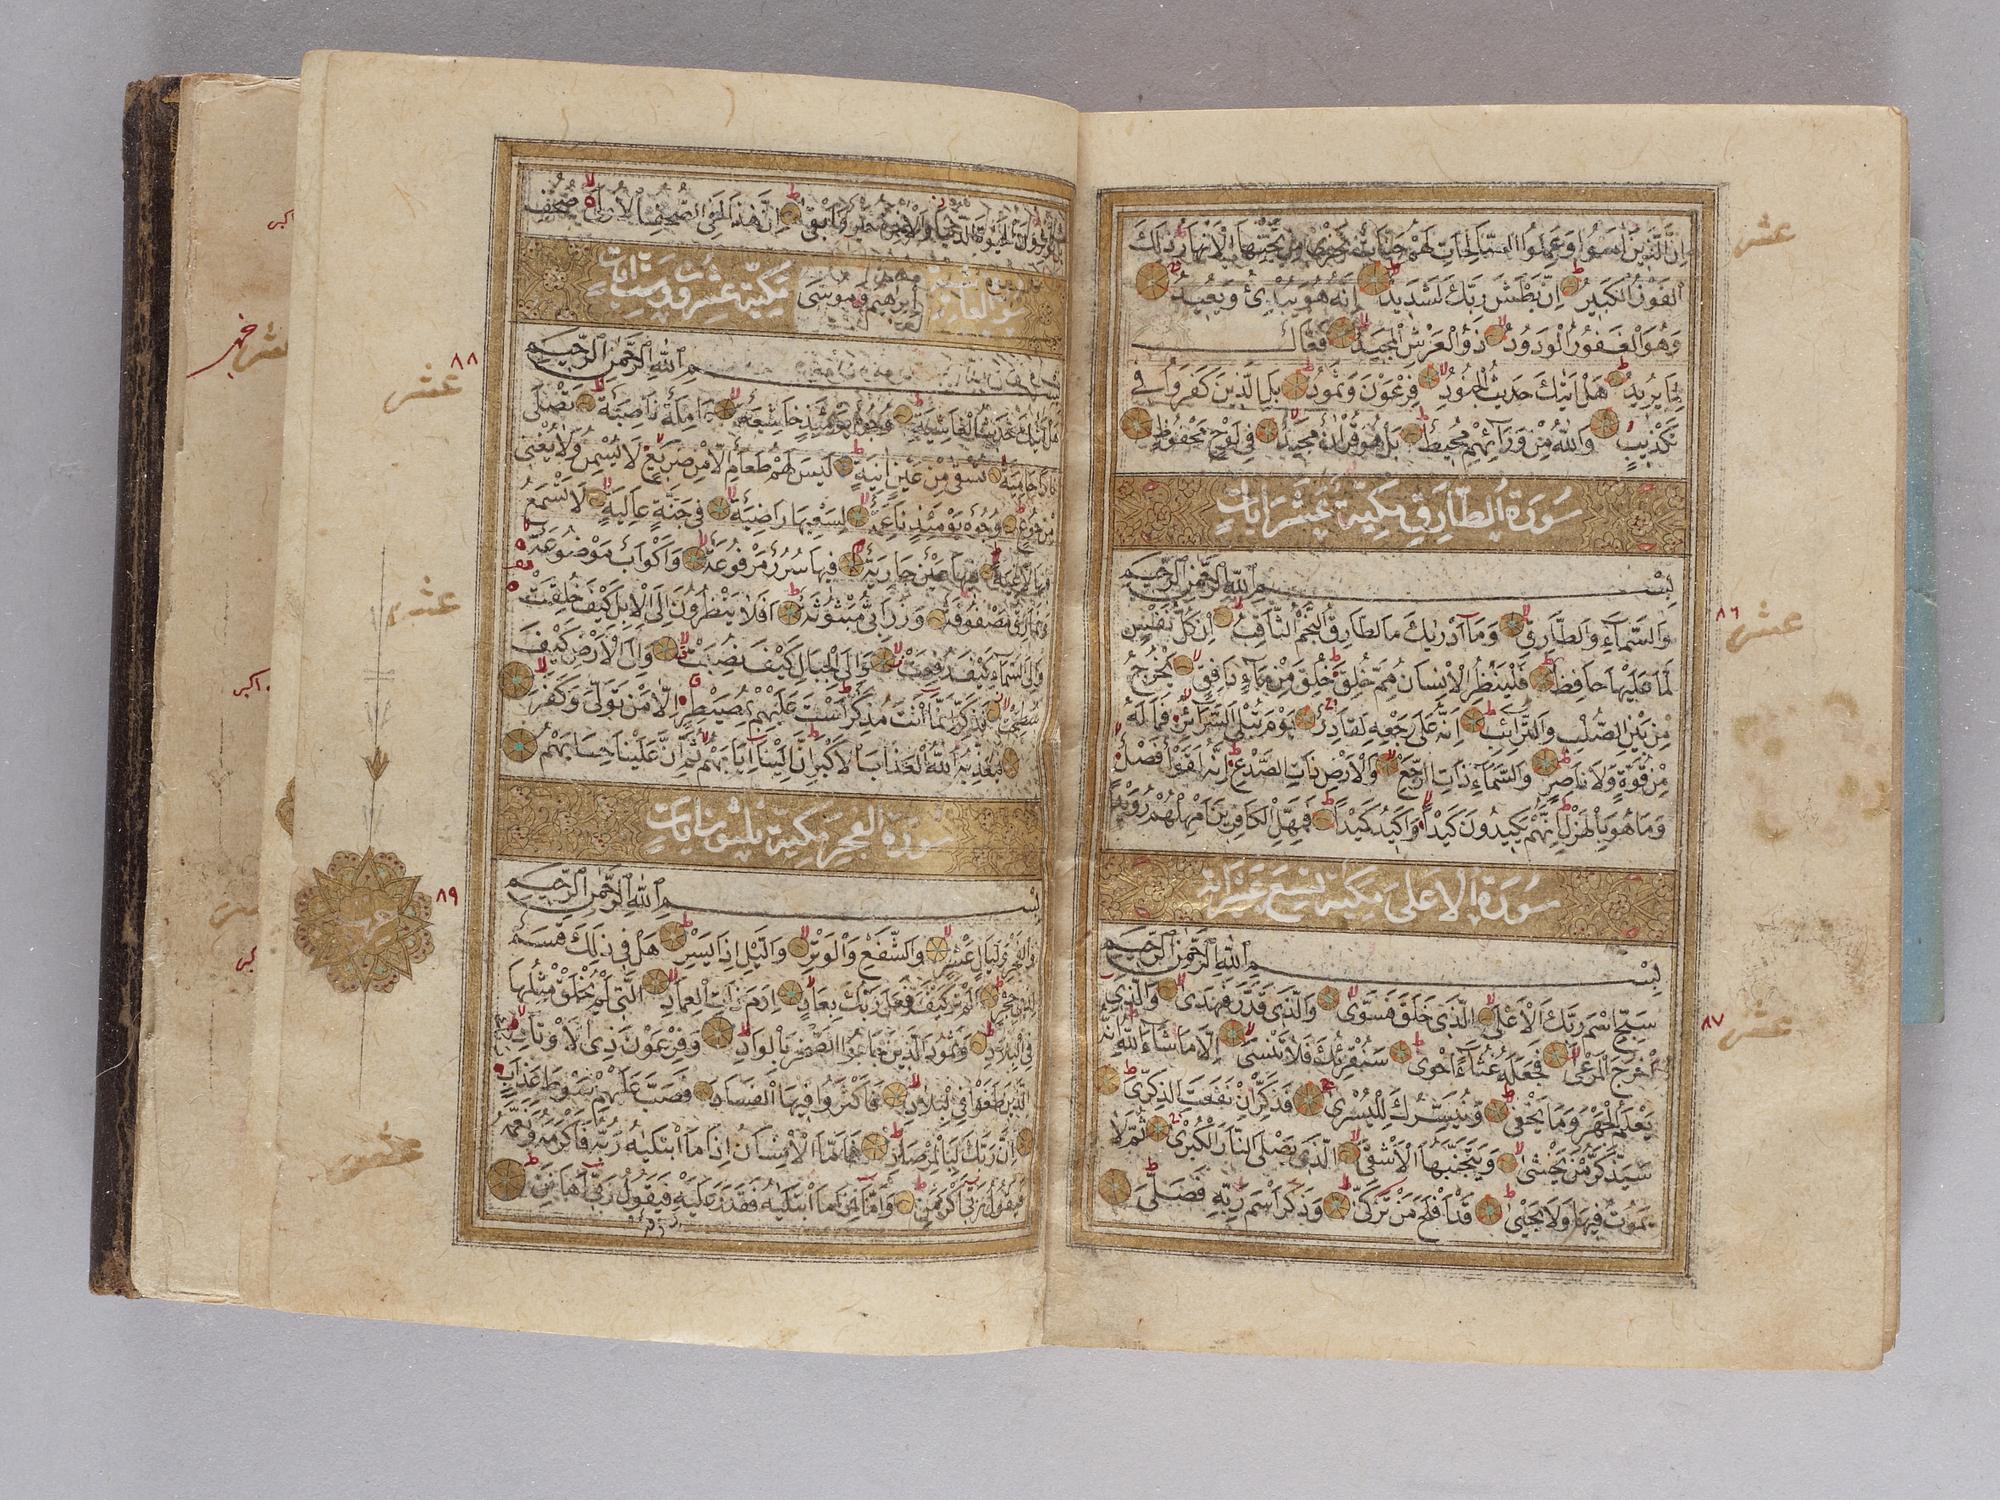 إِنَّ الَّذِينَ آمَنُوا وَعَمِلُوا الصَّالِحَاتِ لَهُمْ جَنَّاتٌ تَجْرِي مِنْ تَحْتِهَا الْأَنْهَارُ ذَلِكَ
الْفَوْزُ الْكَبِيرُ إِنَّ بَطْشَ رَبِّكَ لَشَدِيدٌ إِنَّهُ هُوَ يُبْدِئُ وَيُعِيدُ
وَهُوَ الْغَفُورُ الْوَدُودُ ذُو الْعَرْشِ الْمَجِيدُ فَعَّالٌ
لِمَا يُرِيدُ هَلْ أَتَيكَ حَدِيثُ الْجُنُودِ فِرْعَوْنَ وَثَمُودَ بَلِ الَّذِينَ كَفَرُوا فِي
تَكْذِيبٍ وَاللَّهُ مِنْ وَرَائِهِمْ مُحِيطٌ بَلْ هُوَ قُرْآنٌ مَجِيدٌ فِي لَوْحٍ مَحْفُوظٍ
سُورَةُ الطَّارِقِ مَكِيَّة عَشَرَ آيَاتٍ
بِسْمِ اللَّهِ الرَّحْمَنِ الرَّحِيمِ
وَالسَّمَاءِ وَالطَّارِقِ وَمَا أَدْرَيكَ مَا الطَّارِقُ النَّجْمُ الثَّاقِبُ إِنْ كُلُّ نَفْسٍ
لَمَّا عَلَيْهَا حَافِظٌ فَلْيَنْظُرِ الْإِنْسَانُ مِمَّ خُلِقَ خُلِقَ مِنْ مَاءٍ دَافِقٍ يَخْرُجُ
مِنْ بَيْنِ الصُّلْبِ وَالتَّرَائِبِ إِنَّهُ عَلَى رَجْعِهِ لَقَادِرٌ يَوْمَ تُبْلَى السَّرَائِرُ فَمَا لَهُ
مِنْ قُوَّةٍ وَلَا نَاصِرٍ وَالسَّمَاءِ ذَاتِ الرَّجْعِ وَالْأَرْضِ ذَاتِ الصَّدْعِ إِنَّهُ لَقَوْلٌ فَصْلٌ
وَمَا هُوَ بِالْهَزْلِ إِنَّهُمْ يَكِيدُونَ كَيْدًا وَأَكِيدُ كَيْدًا فَمَهِّلِ الْكَافِرِينَ أَمْهِلْهُمْ رُوَيْدًا
سُورَةُ الْأَعْلَى مَكِيَّة تِسْعَ عَشَرَ آية
بِسْمِ اللَّهِ الرَّحْمَنِ الرَّحِيمِ
سَبِّحِ اسْمَ رَبِّكَ الْأَعْلَى الَّذِي خَلَقَ فَسَوَّى وَالَّذِي قَدَّرَ فَهَدَى وَالَّذِي
أَخْرَجَ الْمَرْعَى فَجَعَلَهُ غُثَاءً أَحْوَى سَنُقْرِئُكَ فَلَا تَنْسَى إِلَّا مَا شَاءَ اللَّهُ إِنَّهُ
يَعْلَمُ الْجَهْرَ وَمَا يَخْفَى وَنُيَسِّرُكَ لِلْيُسْرَى فَذَكِّرْ إِنْ نَفَعَتِ الذِّكْرَى
سَيَذَّكَّرُ مَنْ يَخْشَى وَيَتَجَنَّبُهَا الْأَشْقَى الَّذِي يَصْلَى النَّارَ الْكُبْرَى ثُمَّ لَا
يَمُوتُ فِيهَا وَلَا يَحْيَى قَدْ أَفْلَحَ مَنْ تَزَكَّى وَذَكَرَ اسْمَ رَبِّهِ فَصَلَّى
عشر
٨٦
عشر
٨٧
عشر
بَلْ تُؤْثِرُونَ الْحَيوةَ الدُّنْيَا وَالْآخِرَةُ خَيْرٌ وَأَبْقَى إِنَّ هَذَا لَفِي الصُّحُفِ الْأُولَى صُحُفِ
إِبْرَاهِيمَ وَمُوسَى
مَكِيَّة عِشْرُونَ وَسِتّ آيَاتٍ
بِسْمِ اللَّهِ الرَّحْمَنِ الرَّحِيمِ
هَلْ أَتَيكَ حَدِيثُ الْغَاشِيَةِ وُجُوهٌ يَوْمَئِذٍ خَاشِعَةٌ عَامِلَةٌ نَاصِبَةٌ تَصْلَى
نَارًا حَامِيَةً تُسْقَى مِنْ عَيْنٍ آنِيَةٍ لَيْسَ لَهُمْ طَعَامٌ إِلَّا مِنْ ضَرِيعٍ لَا يُسْمِنُ وَلَا يُغْنِي
مِنْ جُوعٍ وُجُوهٌ يَوْمَئِذٍ نَاعِمَةٌ لِسَعْيِهَا رَاضِيَةٌ فِي جَنَّةٍ عَالِيَةٍ لَا تَسْمَعُ
فِيهَا لَاغِيَةً فِيهَا عَيْنٌ جَارِيَةٌ فِيهَا سُرُرٌ مَرْفُوعَةٌ وَأَكْوَابٌ مَوْضُوعَةٌ
وَنَمَارِقُ مَصْفُوفَةٌ وَزَرَابِيُّ مَبْثُوثَةٌ أَفَلَا يَنْظُرُونَ إِلَى الْإِبِلِ كَيْفَ خُلِقَتْ
وَإِلَى السَّمَاءِ كَيْفَ رُفِعَتْ وَإِلَى الْجِبَالِ كَيْفَ نُصِبَتْ وَإِلَى الْأَرْضِ كَيْفَ
سُطِحَتْ فَذَكِّرْ إِنَّمَا أَنْتَ مُذَكِّرٌ لَسْتَ عَلَيْهِمْ بِمُصَيْطِرٍ إِلَّا مَنْ تَوَلَّى وَكَفَرَ
فَيُعَذِّبُهُ اللَّهُ الْعَذَابَ الْأَكْبَرَ إِنَّ إِلَيْنَا إِيَابَهُمْ ثُمَّ إِنَّ عَلَيْنَا حِسَابَهُمْ
سُورَةُ الْفَجْرِ مَكِيَّة ثلثون آيَاتٍ
بِسْمِ اللَّهِ الرَّحْمَنِ الرَّحِيمِ
وَالْفَجْرِ وَلَيَالٍ عَشْرٍ وَالشَّفْعِ وَالْوَتْرِ وَالَّيْلِ إِذَا يَسْرِ هَلْ فِي ذَلِكَ قَسَمٌ
لِذِي حِجْرٍ أَلَمْ تَرَ كَيْفَ فَعَلَ رَبُّكَ بِعَادٍ إِرَمَ ذَاتِ الْعِمَادِ الَّتِي لَمْ يُخْلَقْ مِثْلُهَا
فِي الْبِلَادِ وَثَمُودَ الَّذِينَ جَابُوا الصَّخْرَ بِالْوَادِ وَفِرْعَوْنَ ذِي الْأَوْتَادِ
الَّذِينَ طَغَوْا فِي الْبِلَادِ فَأَكْثَرُوا فِيهَا الْفَسَادَ فَصَبَّ عَلَيْهِمْ رَبُّكَ سَوْطَ عَذَابٍ
إِنَّ رَبَّكَ لَبِالْمِرْصَادِ فَأَمَّا الْإِنْسَانُ إِذَا مَا ابْتَلَيهُ رَبُّهُ فَأَكْرَمَهُ وَنَعَّمَهُ
فَيَقُولُ رَبِّي أَكْرَمَنِ وَأَمَّا إِذَا مَا ابْتَلَيهُ فَقَدَرَ عَلَيْهِ رِزْقَهُ فَيَقُولُ رَبِّي أَهَانَنِ
٨٨
عشر
عشر
٨٩
عشر